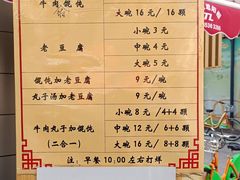 牛肉馄饨
大碗 16元/16颗
小碗 3元
老豆腐 中碗 4元
大碗 5元
馄饨加老豆腐 9元/碗
丸子汤加老豆腐 9元/碗
小碗 8元 /4+4颗
牛肉丸子加馄饨 中碗 12元/6+6颗
(二合一) 大碗 16元/8+8颗
注:早餐10:00左右打烊